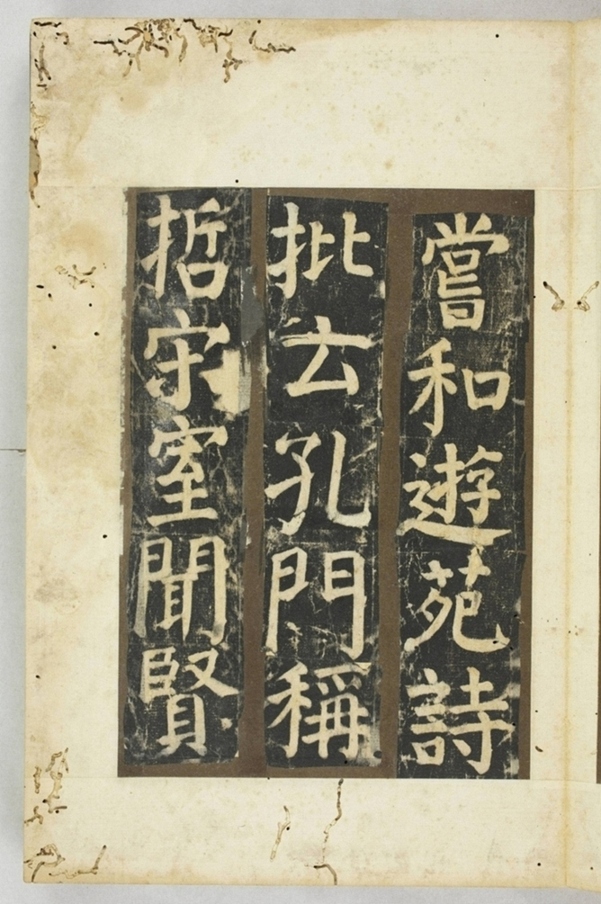 嘗和遊苑詩
批云孔門稱
哲宋室聞賢